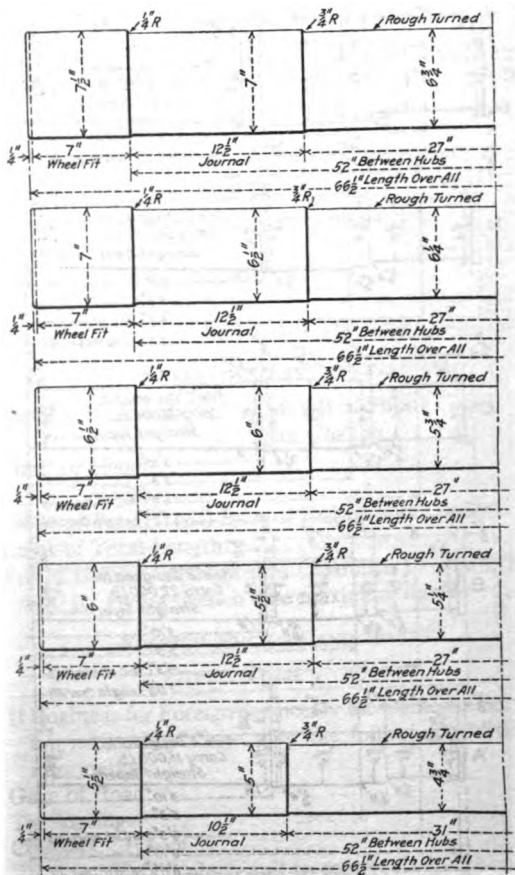 1/4"R 3/4"R Rough Turned
7 1/2" 7" 6 3/4"
1/4" 7" 12 1/2" 27"
Wheel Fit Journal
52" Between Hubs
66 1/2" Length Over All
1/4"R 3/4"R Rough Turned
7" 6 1/2" 6 1/4"
1/4" 7" 12 1/2" 27"
Wheel Fit Journal
52" Between Hubs
66 1/2" Length Over All
1/4"R 3/4"R Rough Turned
6 1/2" 6" 5 3/4"
1/4" 7" 12 1/2" 27"
Wheel Fit Journal
52" Between Hubs
66 1/2" Length Over All
1/4"R 3/4"R Rough Turned
6" 5 1/2" 5 1/4"
1/4" 7" 12 1/2" 27"
Wheel Fit Journal
52" Between Hubs
66 1/2" Length Over All
1/4"R 3/4"R Rough Turned
5 1/2" 5" 4 3/4"
1/4" 7" 10 1/2" 31"
Wheel Fit Journal
52" Between Hubs
66 1/2" Length Over All